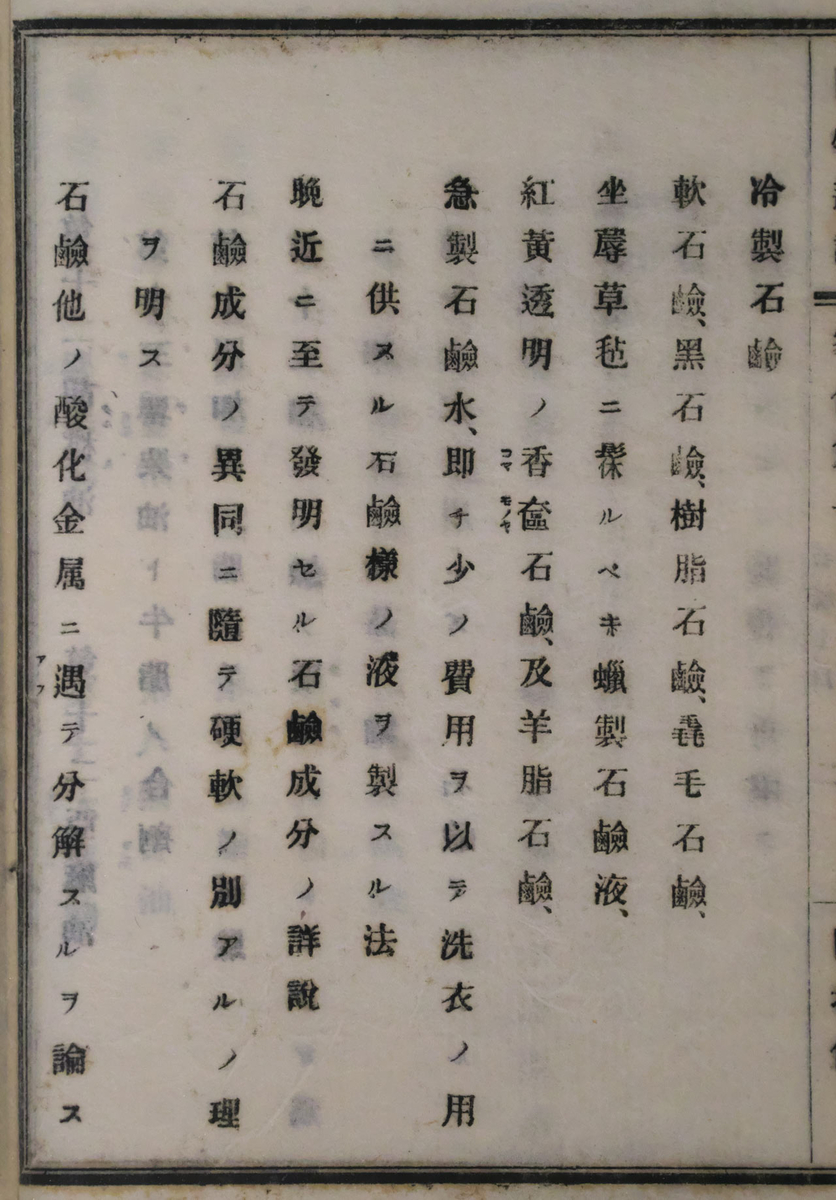 冷製石鹼
軟石鹼、黑石鹼、樹脂石鹼、毳毛石鹼、
坐蓐草毡ニ髹ルベキ蠟製石鹼液、
紅黃透明ノ香奩石鹼、及羊脂石鹼、
コマ モノヤ
急製石鹼水、即チ少ノ費用ヲ以テ洗衣ノ用
ニ供スル石鹼樣ノ液ヲ製スル法
晩近ニ至テ發明セル石鹼成分ノ詳說
石鹼成分ノ異同ニ隨テ硬軟ノ別アルノ理
ヲ明ス
石鹼他ノ酸化金属ニ遇テ分解スルヲ論ス
アフ